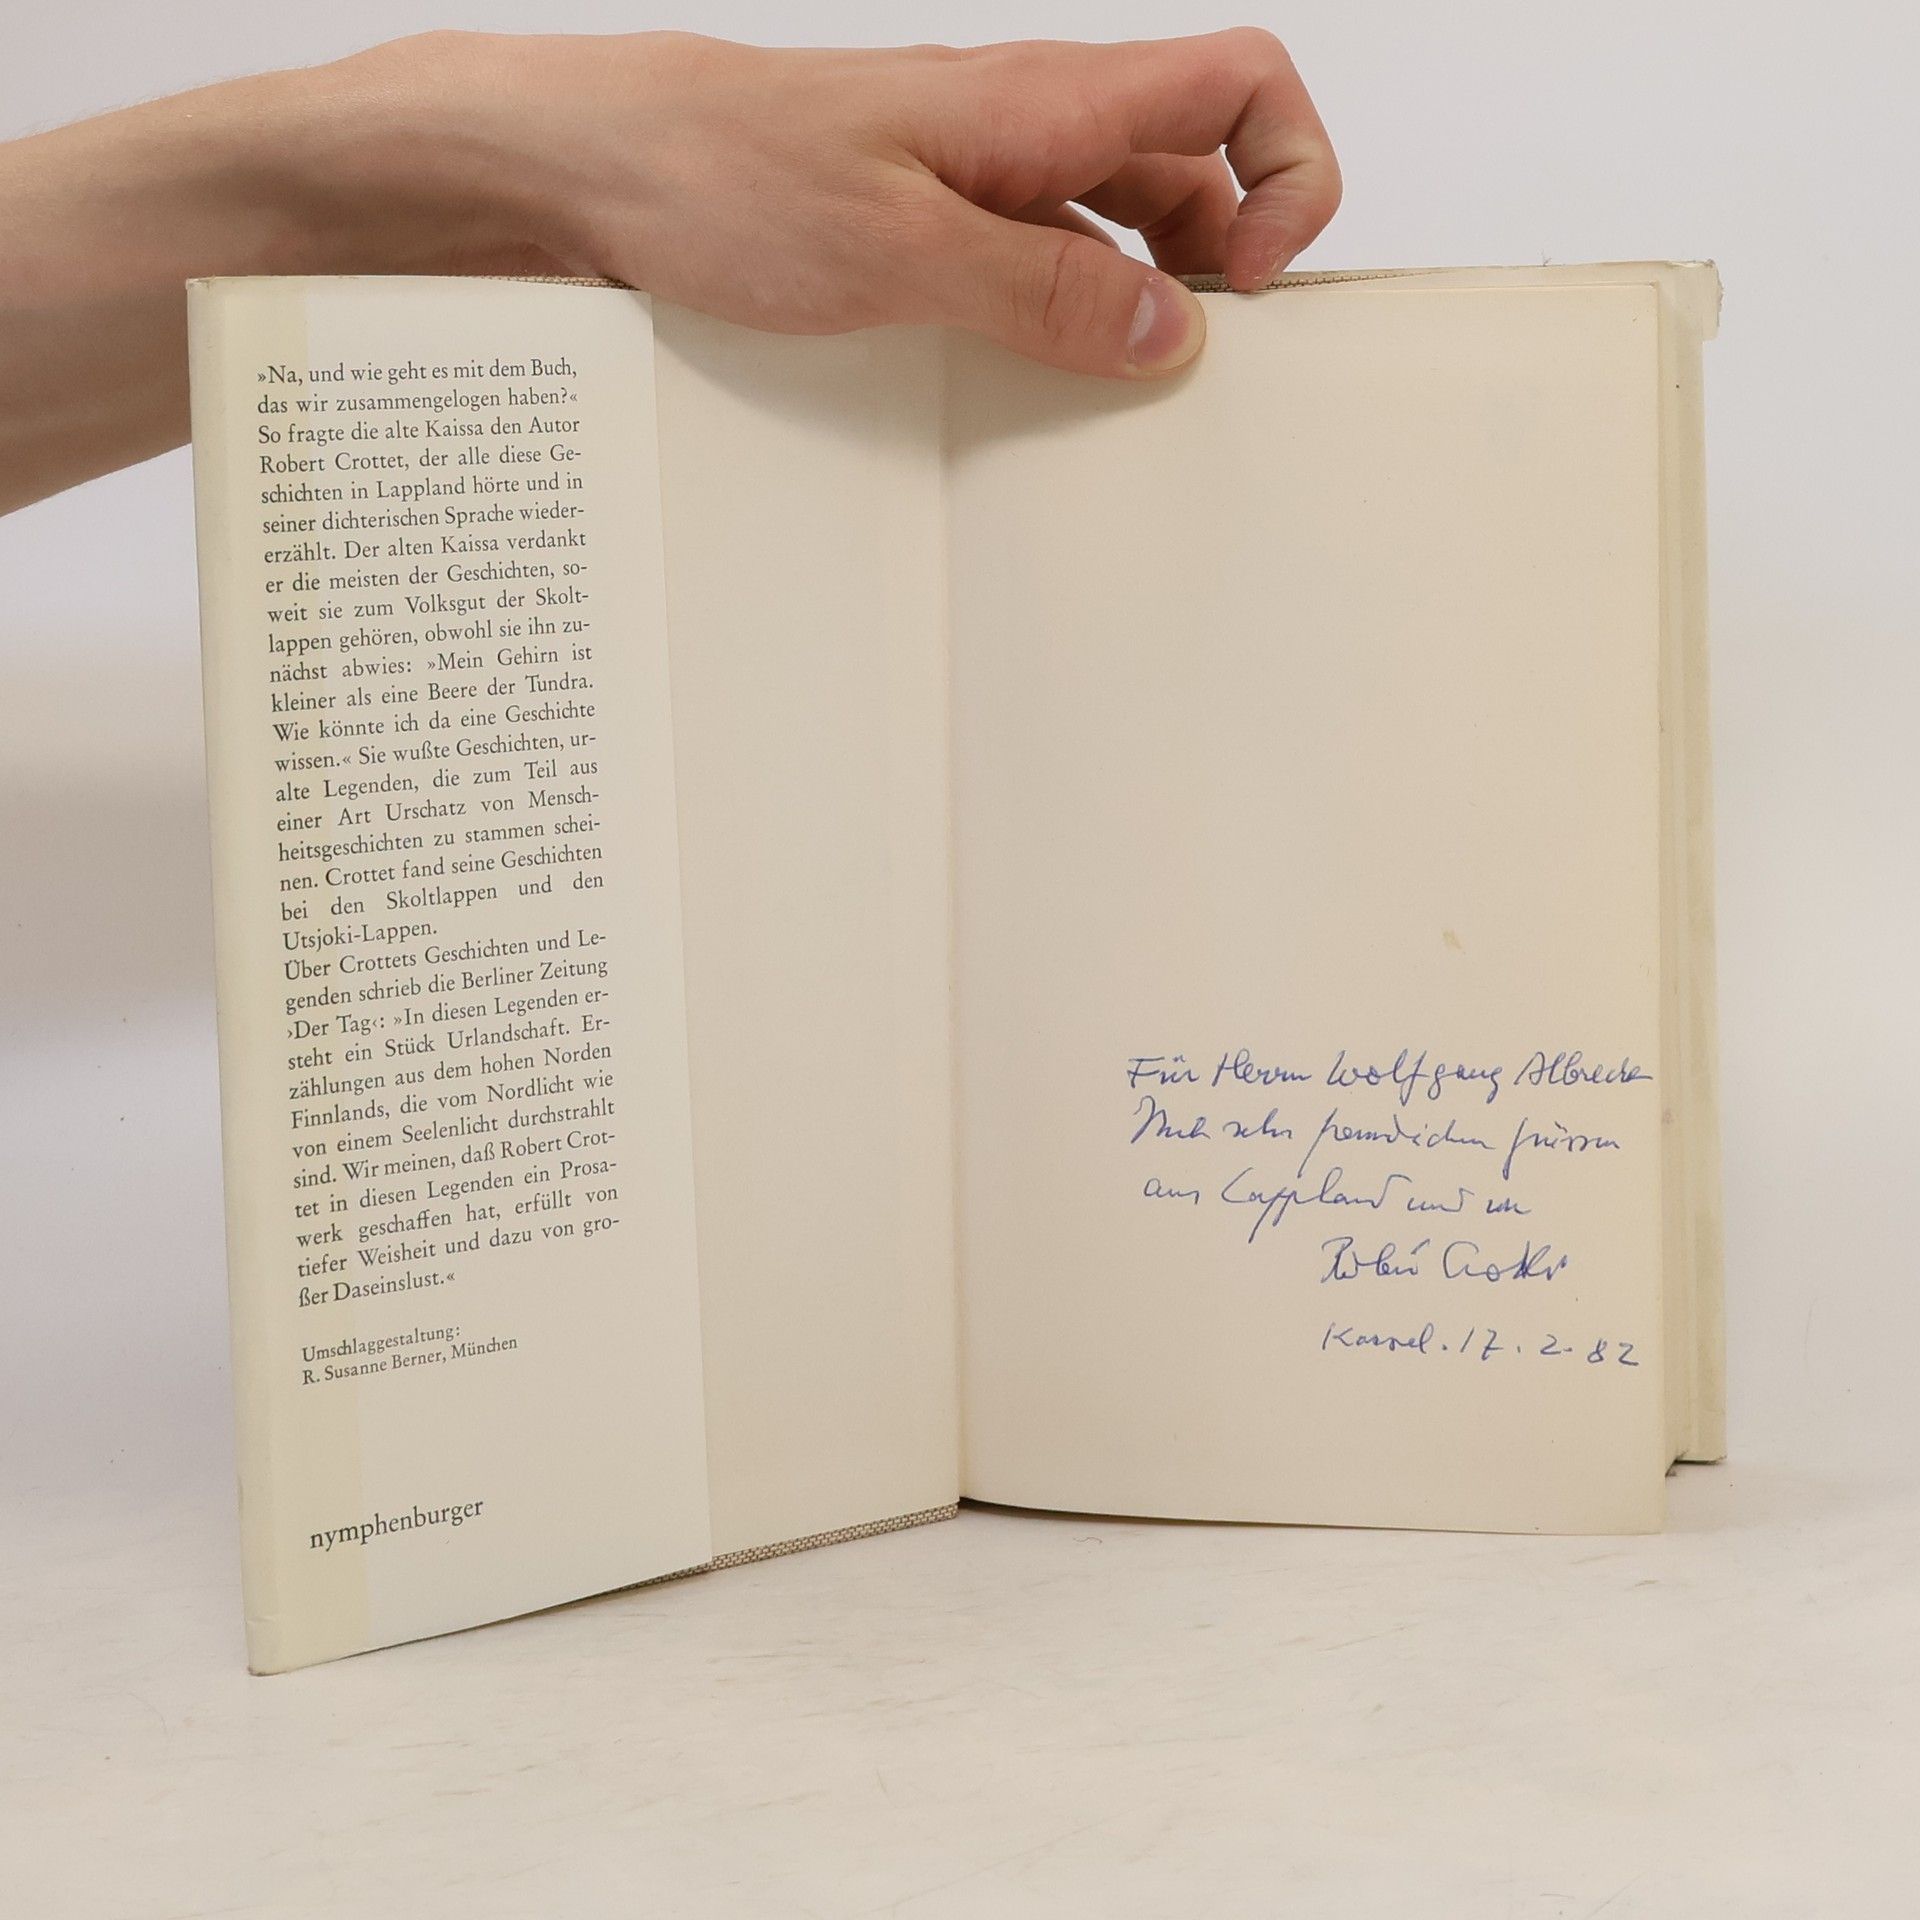 »Na, und wie geht es mit dem Buch,
das wir zusammengelogen haben?«
So fragte die alte Kaissa den Autor
Robert Crottet, der alle diese Ge-
schichten in Lappland hörte und in
seiner dichterischen Sprache wieder-
erzählt. Der alten Kaissa verdankt
er die meisten der Geschichten, so-
weit sie zum Volksgut der Skolt-
lappen gehören, obwohl sie ihn zu-
nächst abwies: »Mein Gehirn ist
kleiner als eine Beere der Tundra.
Wie könnte ich da eine Geschichte
wissen.« Sie wußte Geschichten, ur-
alte Legenden, die zum Teil aus
einer Art Urschatz von Mensch-
heitsgeschichten zu stammen schei-
nen. Crottet fand seine Geschichten
bei den Skoltlappen und den
Utsjoki-Lappen.
Über Crottets Geschichten und Le-
genden schrieb die Berliner Zeitung
›Der Tag‹: »In diesen Legenden er-
steht ein Stück Urlandschaft. Er-
zählungen aus dem hohen Norden
Finnlands, die vom Nordlicht wie
von einem Seelenlicht durchstrahlt
sind. Wir meinen, daß Robert Crot-
tet in diesen Legenden ein Prosa-
werk geschaffen hat, erfüllt von
tiefer Weisheit und dazu von gro-
ßer Daseinslust.«
Umschlaggestaltung:
R. Susanne Berner, München
nymphenburger
Für Herrn Wolfgang
sehr freundlichen Grüssen
aus Lappland und von
Robert Crottet
Kassel. 17. 2. 82